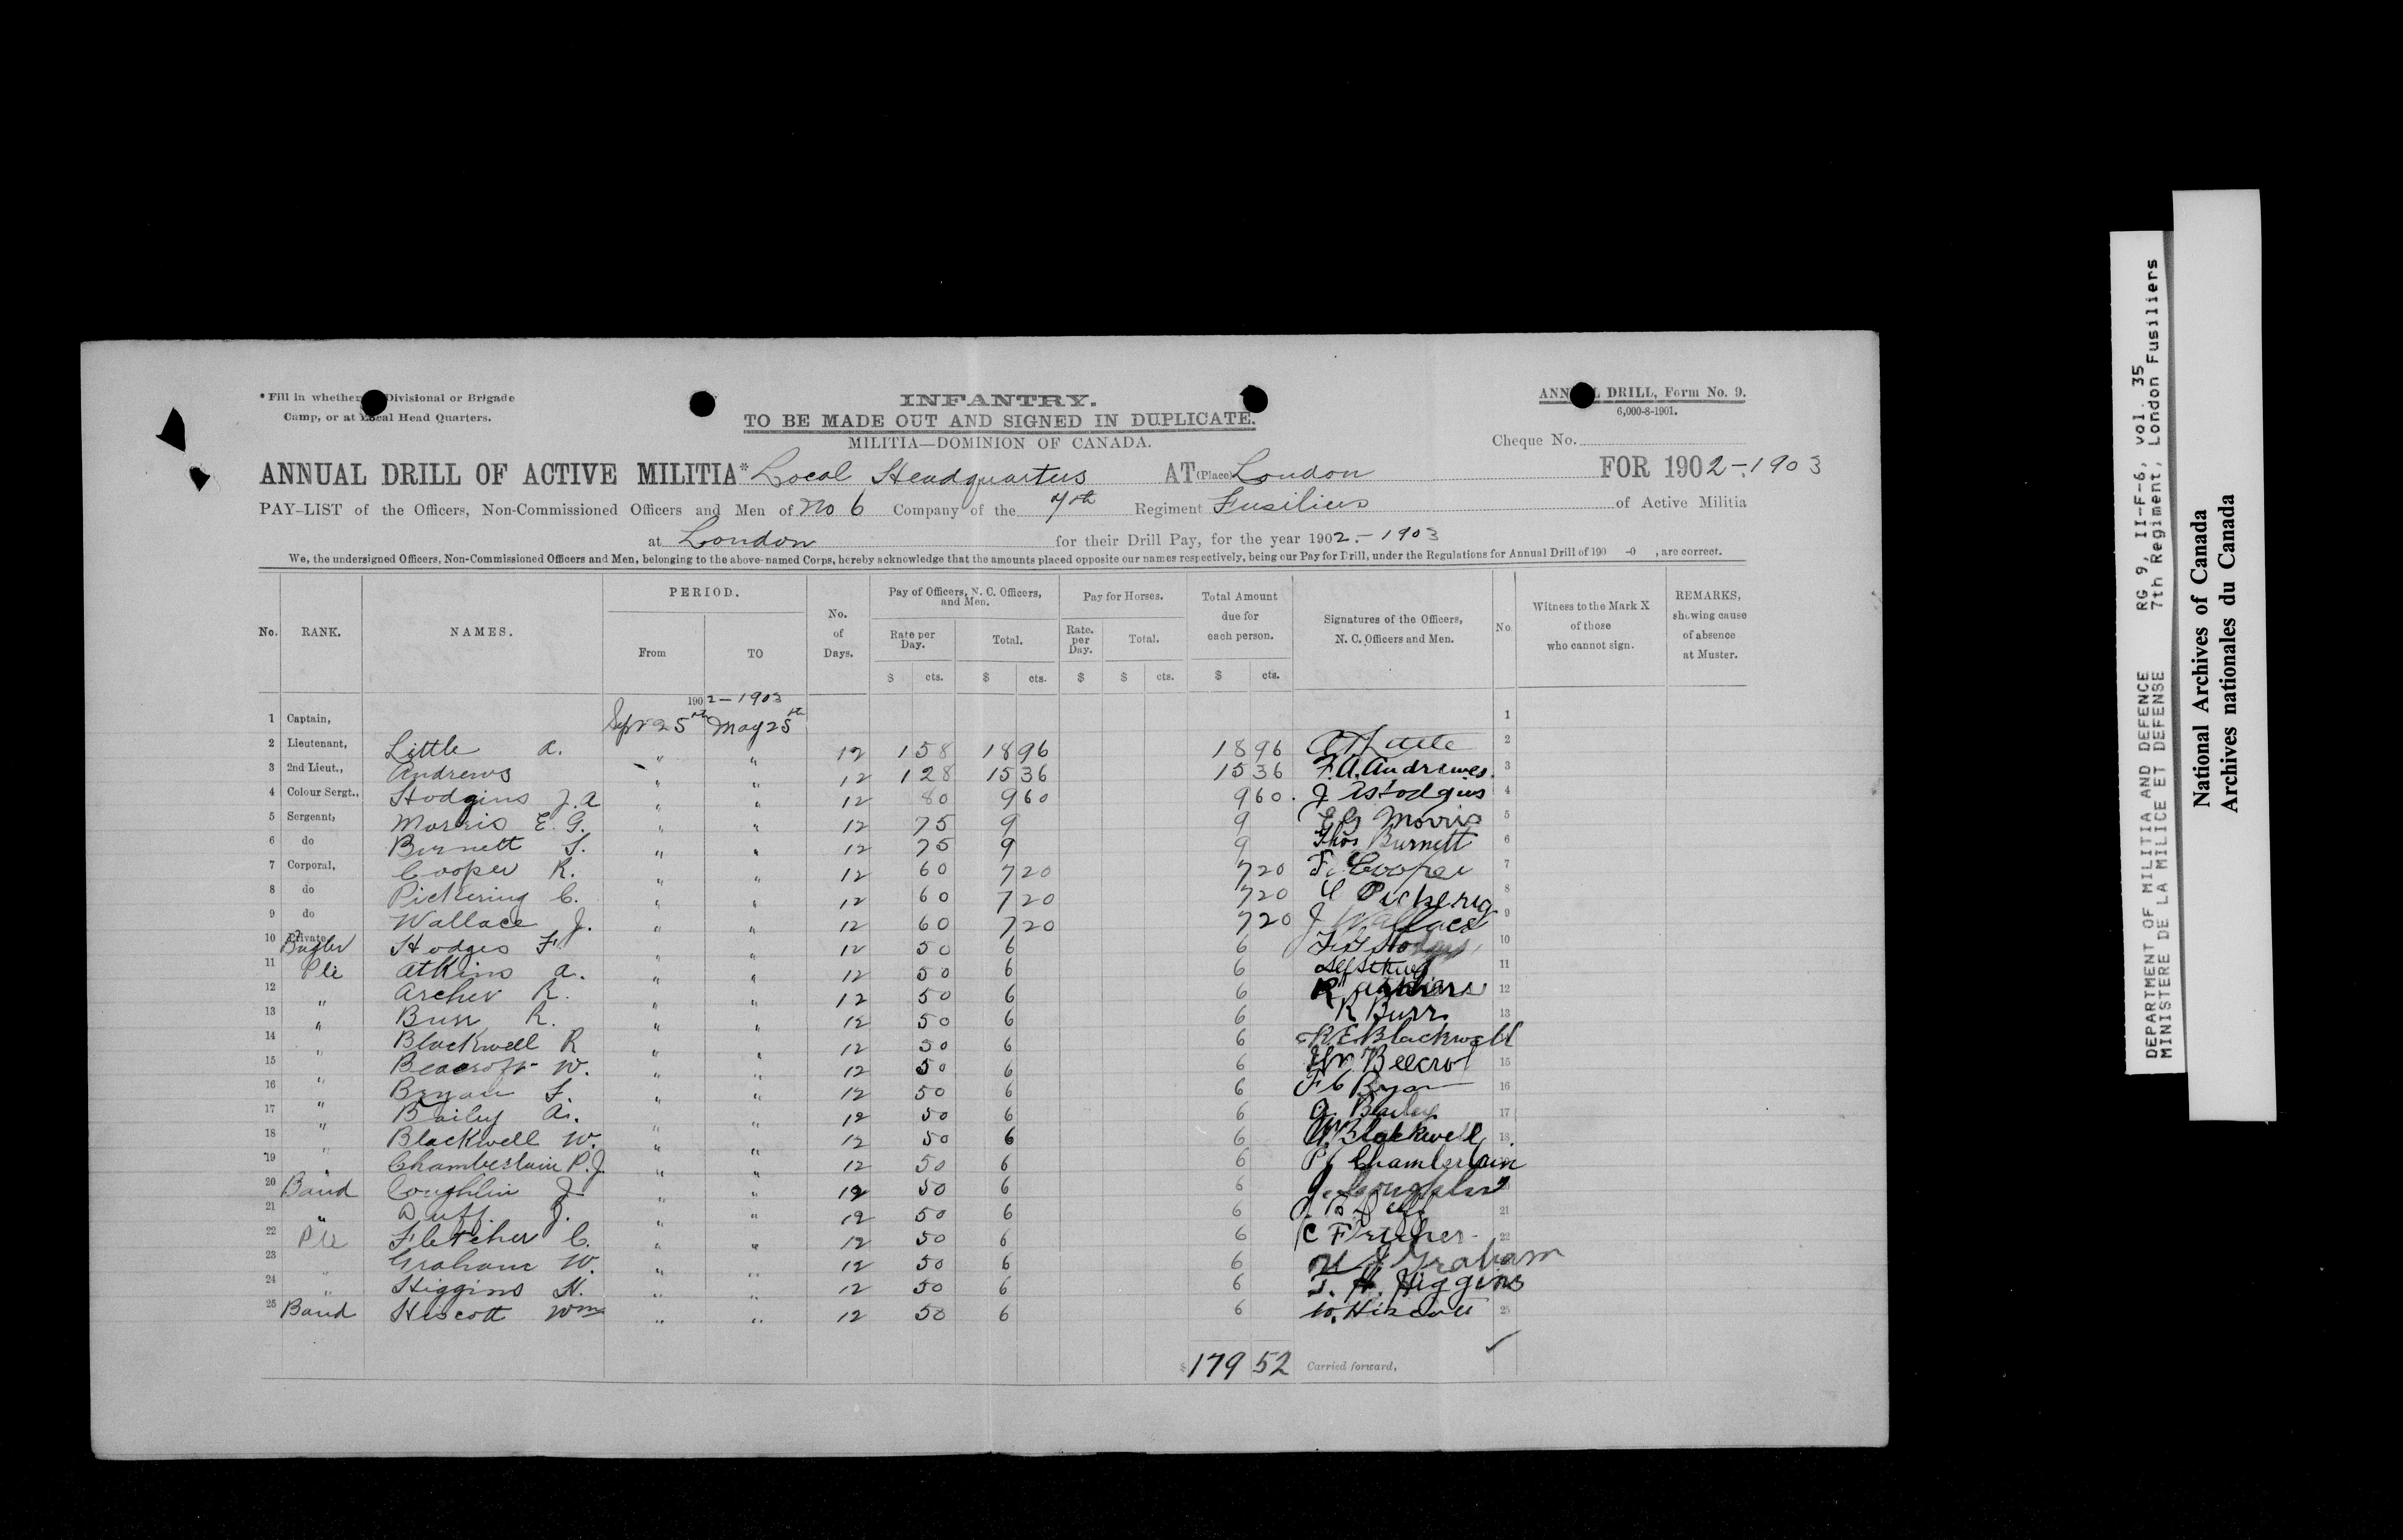 *Fill in whether Divisional or Brigade
Camp, or at Local Head Quarters.
INFANTRY.
TO BE MADE OUT AND SIGNED IN DUPLICATE.
MILITIA—DOMINION OF CANADA.
ANNUAL DRILL, Form No. 9.
6,000-8-1901.
Cheque No.
ANNUAL DRILL OF ACTIVE MILITIA* Local Headquarters AT (Place) London FOR 1902-1903
PAY-LIST of the Officers, Non-Commissioned Officers and Men of No 6 Company of the 7th Regiment Fusiliers of Active Militia
at London for their Drill Pay, for the year 1902.-1903
We, the undersigned Officers, Non-Commissioned Officers and Men, belonging to the above-named Corps, hereby acknowledge that the amounts placed opposite our names respectively, being our Pay for Drill, under the Regulations for Annual Drill of 190 -0 , are correct.
No. RANK. NAMES. PERIOD. From TO No. of Days. Pay of Officers, N. C. Officers, and Men. Rate per Day. Total. Pay for Horses. Rate. per Day. Total. Total Amount due for each person. Signatures of the Officers, N. C. Officers and Men. No. Witness to the Mark X of those who cannot sign. REMARKS, showing cause of absence at Muster.
$ cts. $ cts. $ $ cts. $ cts.
1902-1903
1 Captain, Sept 25th May 25th 1
2 Lieutenant, Little A. " " 12 1 58 18 96 18 96 2
3 2nd Lieut., Andrews " " 12 1 28 15 36 15 36 F. A. Andrewes. 3
4 Colour Sergt., Hodgins J. A " " 12 80 9 60 9 60. J A Hodgins 4
5 Sergeant, Morris E. G. " " 12 75 9 9 E G Morris 5
6 do Burnett T. " " 12 75 9 9 Thos Burnett 6
7 Corporal, Cooper R. " " 12 60 7 20 7 20 Cooper 7
8 do Pickering C. " " 12 60 7 20 7 20 C Pickering 8
9 do Wallace J. " " 12 60 7 20 7 20 J Wallace 9
10 Private, Bugler Hodges F " " 12 50 6 6 Hodges 10
11 Pte Atkins A. " " 12 50 6 6 11
12 " Archer R. " " 12 50 6 6 R 12
13 " Burr R. " " 12 50 6 6 R Burr 13
14 " Blackwell R " " 12 50 6 6 R E Blackwell
15 " Beacroft W. " " 12 50 6 6 Wm Beecrof 15
16 " Bryan F. " " 12 50 6 6 F C Bryan 16
17 " Baily A. " " 12 50 6 6 A Bailey 17
18 " Blackwell W. " " 12 50 6 6 W. Blackwell 18
19 " Chamberlain P. J. " " 12 50 6 6 P J Chamberlain
20 Band Coughlin J " " 12 50 6 6 Coughlin
21 " Duff J. " " 12 50 6 6 Duff 21
22 Pte Fletcher C. " " 12 50 6 6 C Fletcher 22
23 " Graham W. " " 12 50 6 6 W J Graham
24 " Higgins H. " " 12 50 6 6 T. H. Higgins
25 Band Hiscott Wm " " 12 50 6 6 W. Hiscott 25
$179 52 Carried forward,
DEPARTMENT OF MILITIA AND DEFENCE RG 9, II-F-6, vol. 35
MINISTERE DE LA MILICE ET DEFENSE 7th Regiment, London Fusiliers
National Archives of Canada
Archives nationales du Canada